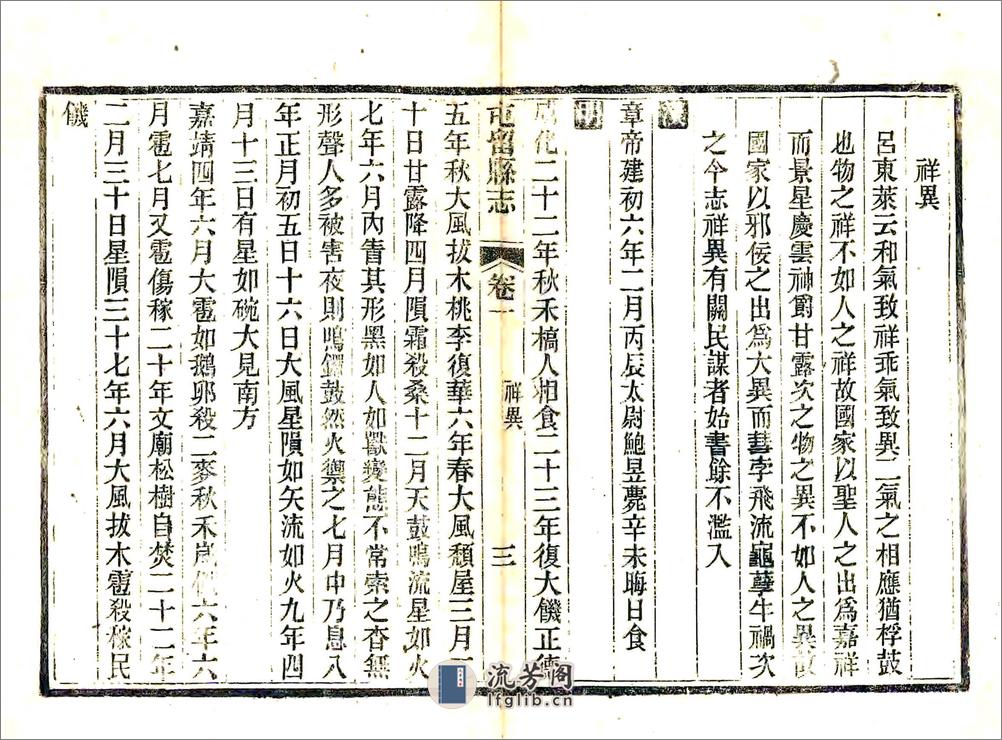 祥異
呂東萊云和氣致祥乖氣致異二氣之相應猶桴鼓
也物之祥不如人之祥故國家以聖人之出爲嘉祥
而景星慶雲神爵甘露次之物之異不如人之異故
國家以邪佞之出爲大異而彗孛飛流龜孽牛禍次
之今志祥異有關民謀者始書餘不濫入
漢
章帝建初六年二月丙辰太尉鮑昱薨辛未晦日食
明
成化二十二年秋禾槁人相食二十三年復大饑正德
屯留縣志
卷一
祥異
三
五年秋大風拔木桃李復華六年春大風頹屋三月
十日甘露降四月隕霜殺桑十二月天鼓鳴流星如火
七年六月內眚其形黑如人如獸變態不常索之杳無
形聲人多被害夜則鳴鑼鼓然火禦之七月中乃息八
年正月初五日十六日大風星隕如矢流如火九年四
月十三日有星如碗大見南方
嘉靖四年六月大雹如鵝卵殺二麥秋禾六年六
月雹七月又雹傷稼二十年文廟松樹自焚二十二年
二月三十日星隕三十七年六月大風拔木雹殺稼民
饑
流芳閣
lfglib.cn